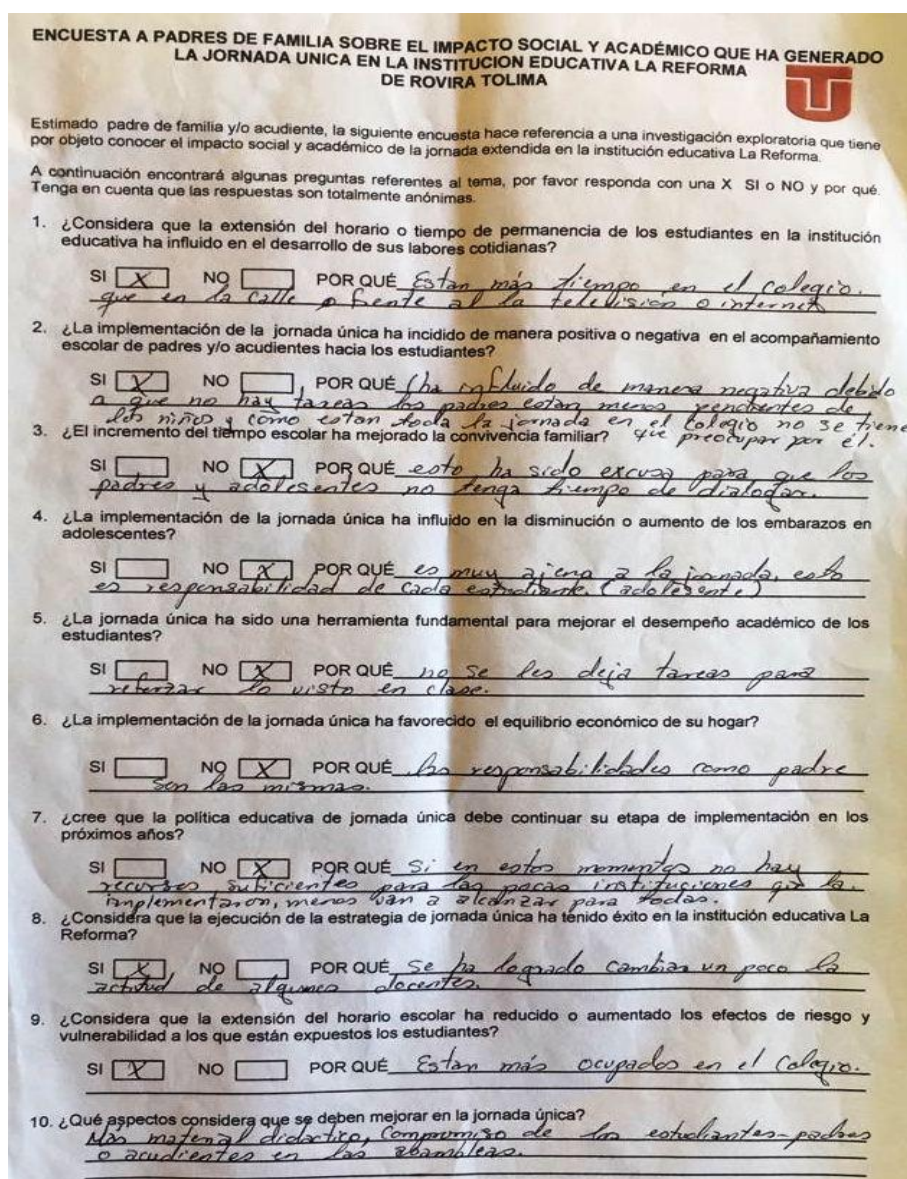 ENCUESTA A PADRES DE FAMILIA SOBRE EL IMPACTO SOCIAL Y ACADÉMICO QUE HA GENERADO
LA JORNADA UNICA EN LA INSTITUCION EDUCATIVA LA REFORMA
DE ROVIRA TOLIMA
Estimado padre de familia y/o acudiente, la siguiente encuesta hace referencia a una investigación exploratoria que tiene
por objeto conocer el impacto social y académico de la jornada extendida en la institución educativa La Reforma.
A continuación encontrará algunas preguntas referentes al tema, por favor responda con una X SI o NO y por qué.
Tenga en cuenta que las respuestas son totalmente anónimas.
1. ¿Considera que la extensión del horario o tiempo de permanencia de los estudiantes en la institución
educativa ha influido en el desarrollo de sus labores cotidianas?
SI X NO POR QUÉ Estan más tiempo en el colegio.
que en la calle o frente al la televisión o internet
2. ¿La implementación de la jornada única ha incidido de manera positiva o negativa en el acompañamiento
escolar de padres y/o acudientes hacia los estudiantes?
SI X NO POR QUÉ (ha influido de manera negativa debido
a que no hay tareas los padres estan menos pendientes de
los niños y como estan toda la jornada en el colegio no se tiene
que preocupar por él.
3. ¿El incremento del tiempo escolar ha mejorado la convivencia familiar?
SI NO X POR QUÉ esto ha sido excusa para que los
padres y adolesentes no tenga tiempo de dialogar.
4. ¿La implementación de la jornada única ha influido en la disminución o aumento de los embarazos en
adolescentes?
SI NO X POR QUÉ es muy ajena a la jornada, esto
es responsabilidad de cada estudiante. (adolesente)
5. ¿La jornada única ha sido una herramienta fundamental para mejorar el desempeño académico de los
estudiantes?
SI NO X POR QUÉ no se les deja tareas para
reforzar lo visto en clase.
6. ¿La implementación de la jornada única ha favorecido el equilibrio económico de su hogar?
SI NO X POR QUÉ las responsabilidades como padre
son las mismas.
7. ¿cree que la política educativa de jornada única debe continuar su etapa de implementación en los
próximos años?
SI NO X POR QUÉ Si en estos momentos no hay
recursos suficientes para las pocas instituciones que la
implementaron, menos van a alcanzar para todas.
8. ¿Considera que la ejecución de la estrategia de jornada única ha tenido éxito en la institución educativa La
Reforma?
SI X NO POR QUÉ Se ha logrado cambiar un poco la
actitud de algunos docentes.
9. ¿Considera que la extensión del horario escolar ha reducido o aumentado los efectos de riesgo y
vulnerabilidad a los que están expuestos los estudiantes?
SI X NO POR QUÉ Estan más ocupados en el Colegio.
10. ¿Qué aspectos considera que se deben mejorar en la jornada única?
Más material didactico, Compromiso de los estudiantes-padres
o acudientes en las asambleas.